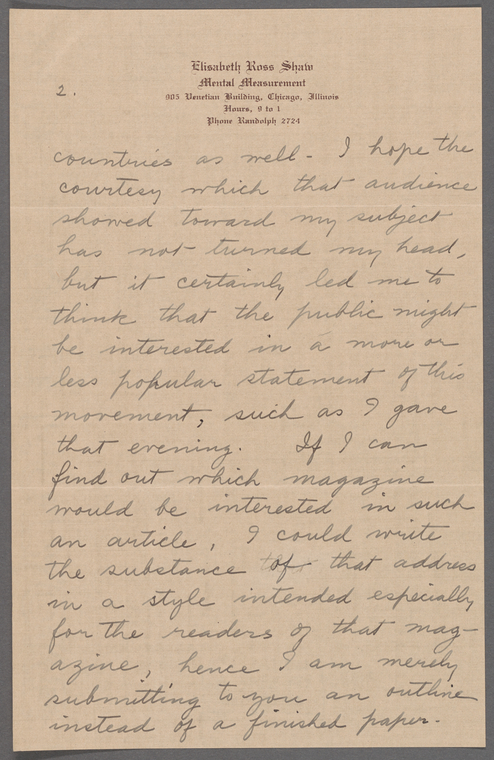 Elisabeth Ross Shaw
Mental Measurement
905 Venetian Building, Chicago, Illinois
Hours, 9 to 1
Phone Randolph 2724
2.
countries as well - I hope the
courtesy which that audience
showed toward my subject
has not turned my head,
but it certainly led me to
think that the public might
be interested in a more or
less popular statement of this
movement, such as I gave
that evening. If I can
find out which magazine
would be interested in such
an article, I could write
the substance of that address
in a style intended especially
for the readers of that mag-
azine, hence I am merely
submitting to you an outline
instead of a finished paper.